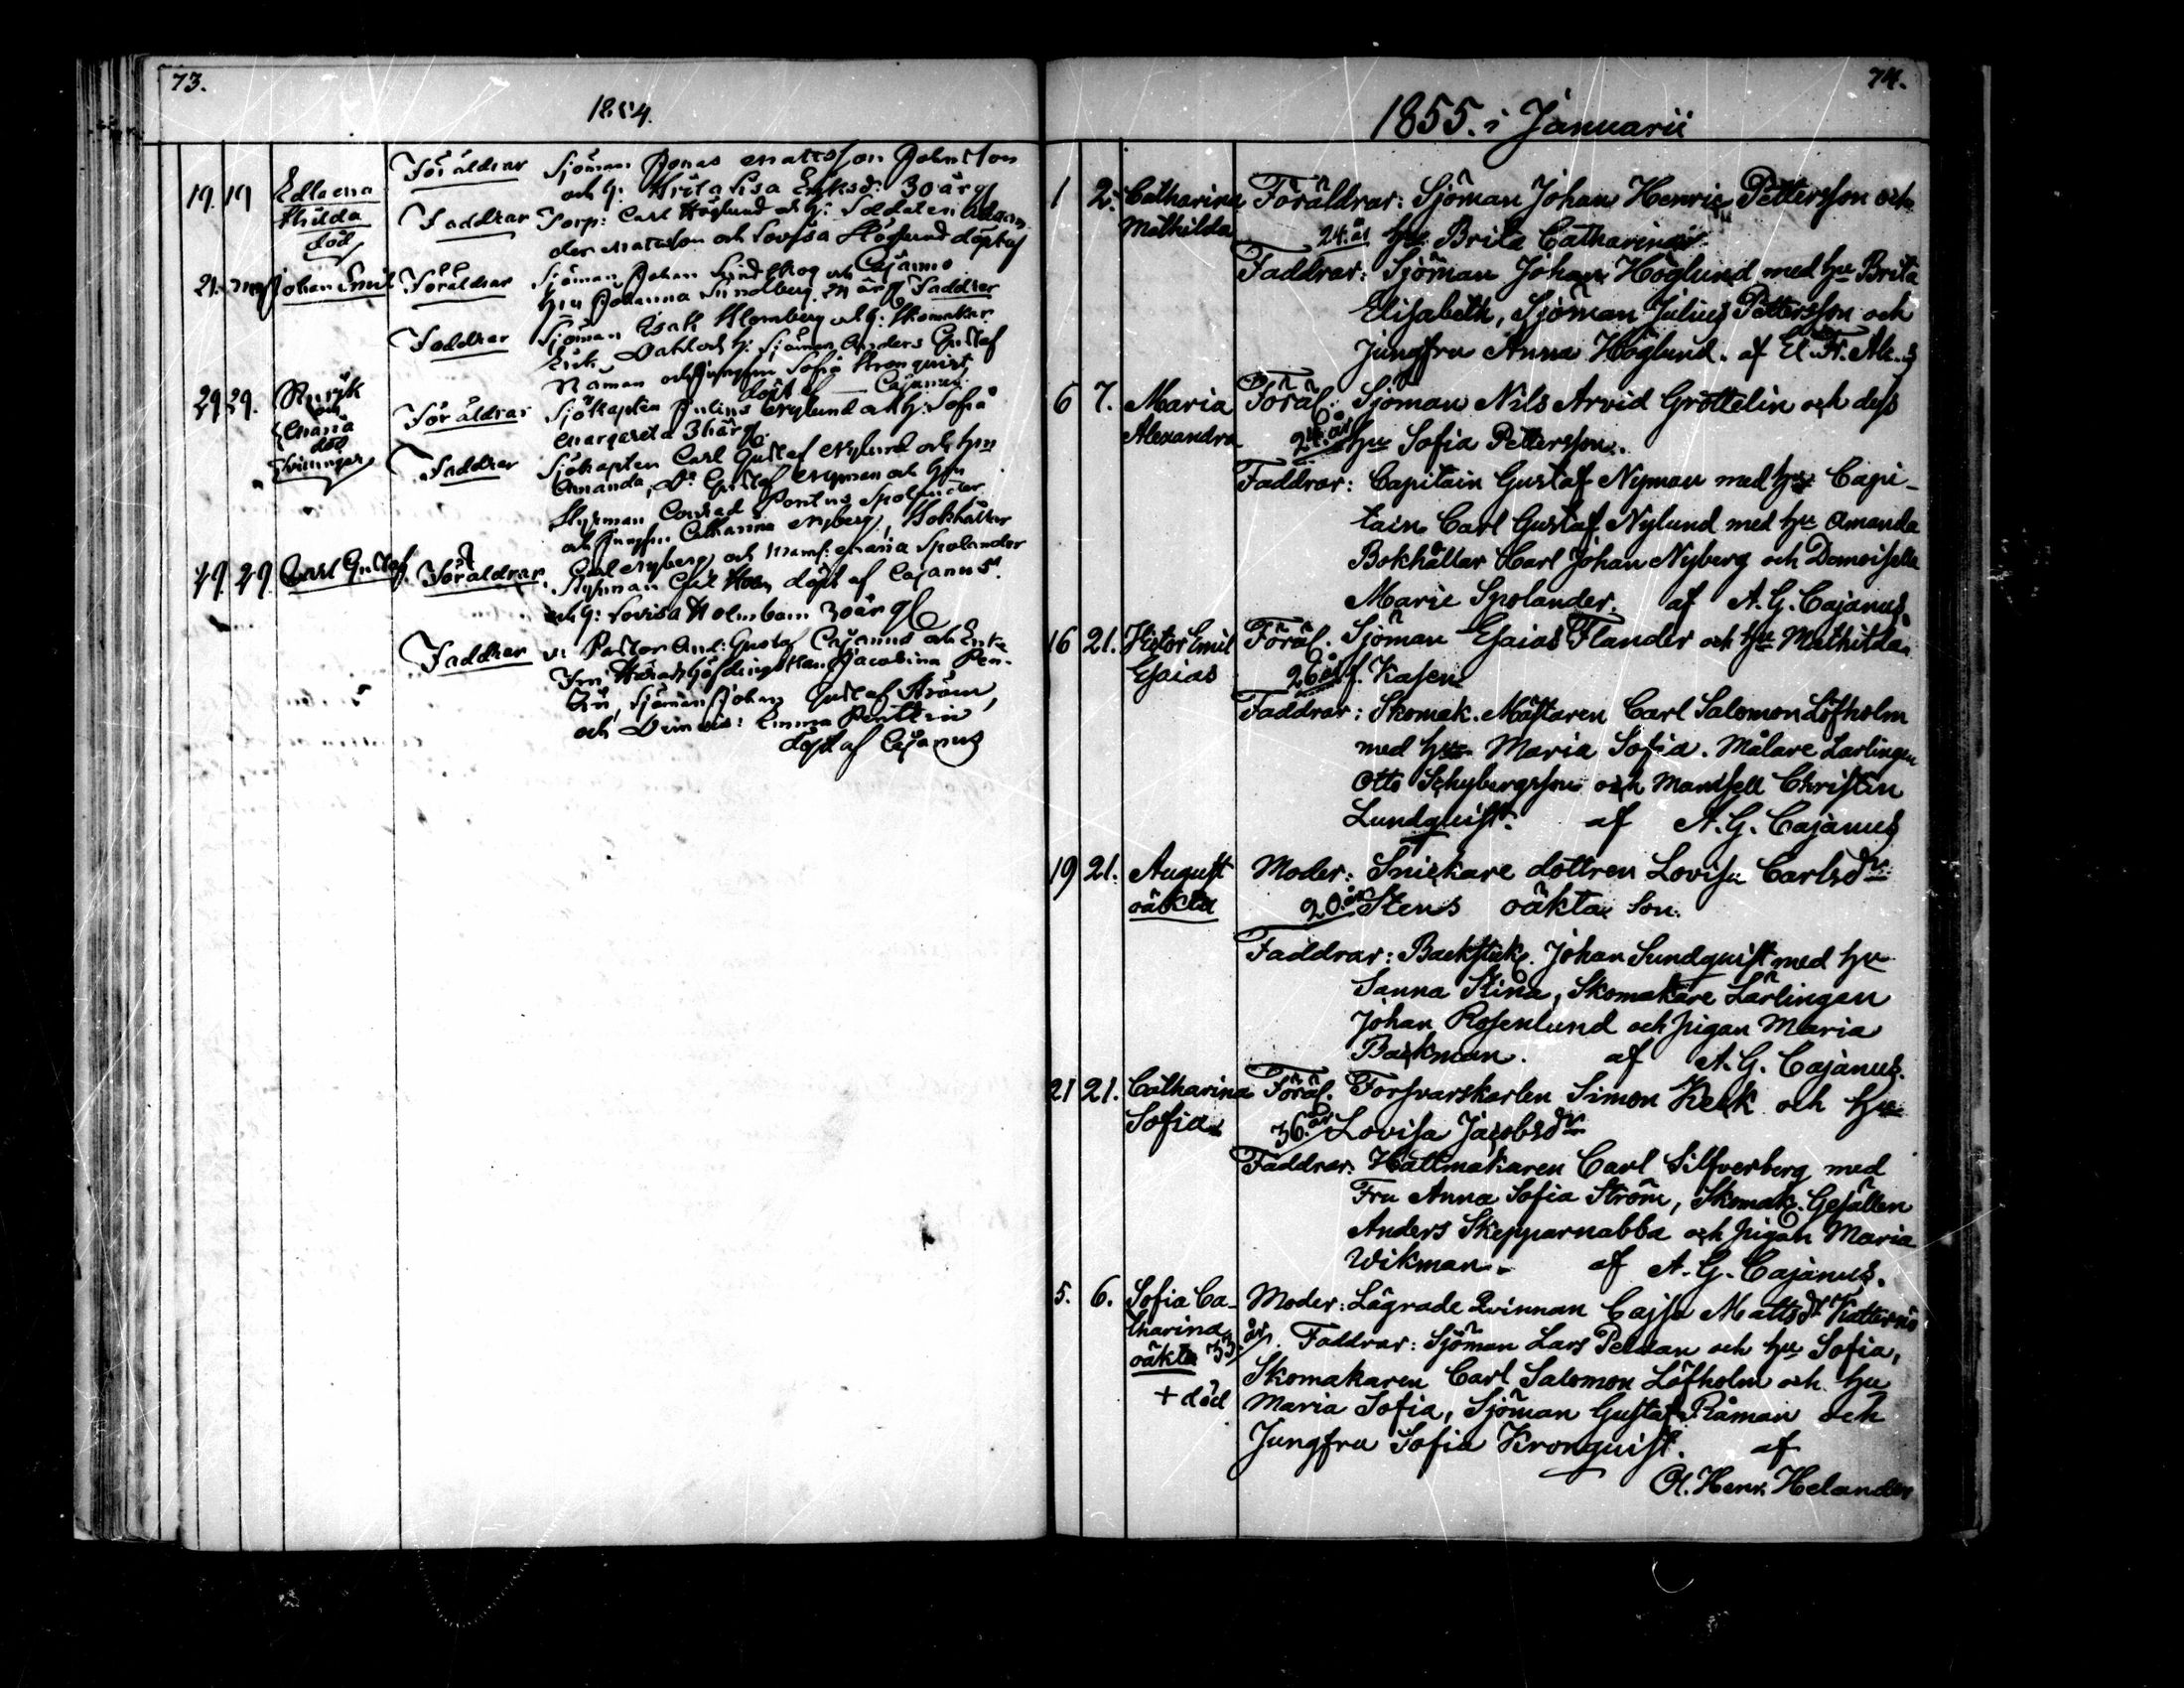 73.
1854.
19. 19 Edla Maria Föräldrar Sjöman Jonas Mattsson
Hilda och h: Brita Lisa Eriksd: 30 år
död Faddrar Torp: Carl Höglund och h: Soldaten
Mattsson och Lovisa Höglund döpt af
Cajanus
21. Johan Emil Föräldrar Sjöman Johan Lindskog och
hru Johanna Sundberg Faddrar
Faddrar Sjöman Esak Blomberg och h: Skomakar
Erik Dahl och h: Sjöman Anders Gustaf
Råman och Jungfru Sofia Kronquist
döpt af Cajanus
29 29. Rurik Föräldrar Sjökapten Julius Nylund och h: Sofia
och Margareta
Maria
död
Tvillingar Faddrar Sjökapten Carl Gustaf Nylund och hru
Amanda, Do Gustaf Nyman och hru
Styrman Conrad Pontus Spolander
och Jungfru Catharina Nyberg, Bokhållar
Carl Nyberg och Mams: Maria Spolander
döpt af Cajanus
29. 29. Carl Gustaf Föräldrar Styrman
och h: Lovisa Holmbom 30 år
Faddrar v: Pastor And: Gustaf Cajanus och Enke
Fru Häradshöfdingskan Jacobina
Sjöman Johan Gustaf Ström,
och Emma
döpt af Cajanus
74.
1855. i Januarii
1 2. Catharina Föräldrar: Sjöman Johan Henric Pettersson och
Mathilda 24. år hu Brita Catharina
Faddrar: Sjöman Johan Höglund med hu Brita
Elisabeth, Sjöman Julius Pettersson och
Jungfru Anna Höglund. af
6 7. Maria Föräl. Sjöman Nils Arvid Gröttelin och dess
Alexandra 24. år hu Sofia Pettersson.
Faddrar: Capitain Gustaf Nyman med hu Capi-
tain Carl Gustaf Nylund med hu Amanda
Bokhållar Carl Johan Nyberg och Demoisella
Marie Spolander. af A. G. Cajanus
16 21. Victor Emil Föräl. Sjöman Esaias Flander och hu Mathilda
Esaias 26 år f. Kasen
Faddrar: Skomak. Mästaren Carl Salomon Löfholm
med hu Maria Sofia. Målare Lärlingen
Otto Schybergsson och Mamsell Christin
Lundquist. af A. G. Cajanus
19 21. August Moder: Snickare dottren Lovisa Carlsdr
oäkta 20. år Stens oäkta Son.
Faddrar: Backstuk. Johan Sundquist med hu
Sanna Stina, Skomakare Lärlingen
Johan Rosenlund och pigan Maria
Backman. af A. G. Cajanus.
21 21. Catharina Föräl. Forsvarskarlen Simon Keck och hu
Sofia 36. år Lovisa Jacobsdr
Faddrar. Hattmakaren Carl Silfverberg med
Fru Anna Sofia Ström, Skomak. Gesällen
Anders Skepparnabba och pigan Maria
Wikman. af A. G. Cajanus.
5. 6. Sofia Ca- Moder: Lägrade Qvinnan Cajsa Mattsdr
tharina 33 år. Faddrar: Sjöman Lars Peldan och hu Sofia,
oäkta Skomakaren Carl Salomon Löfholm och hu
+ död Maria Sofia, Sjöman Gustaf Råman och
Jungfru Sofia Kronquist. af
Henr. Helander